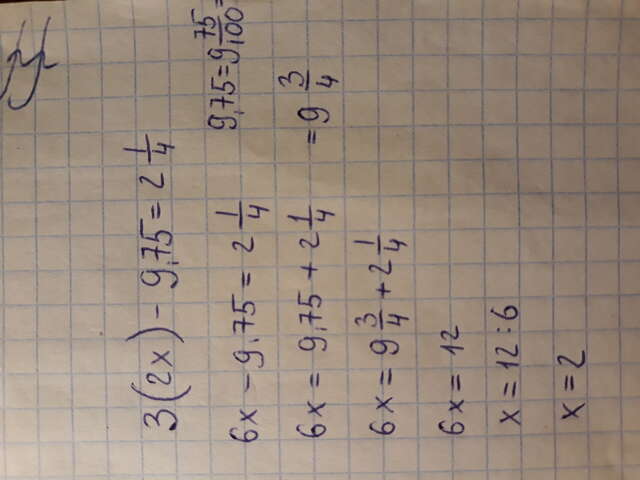 3(2x) - 9,75 = 2 1/4
6x - 9,75 = 2 1/4
9,75 = 9 75/100 =
6x = 9,75 + 2 1/4
= 9 3/4
6x = 9 3/4 + 2 1/4
6x = 12
x = 12 : 6
x = 2